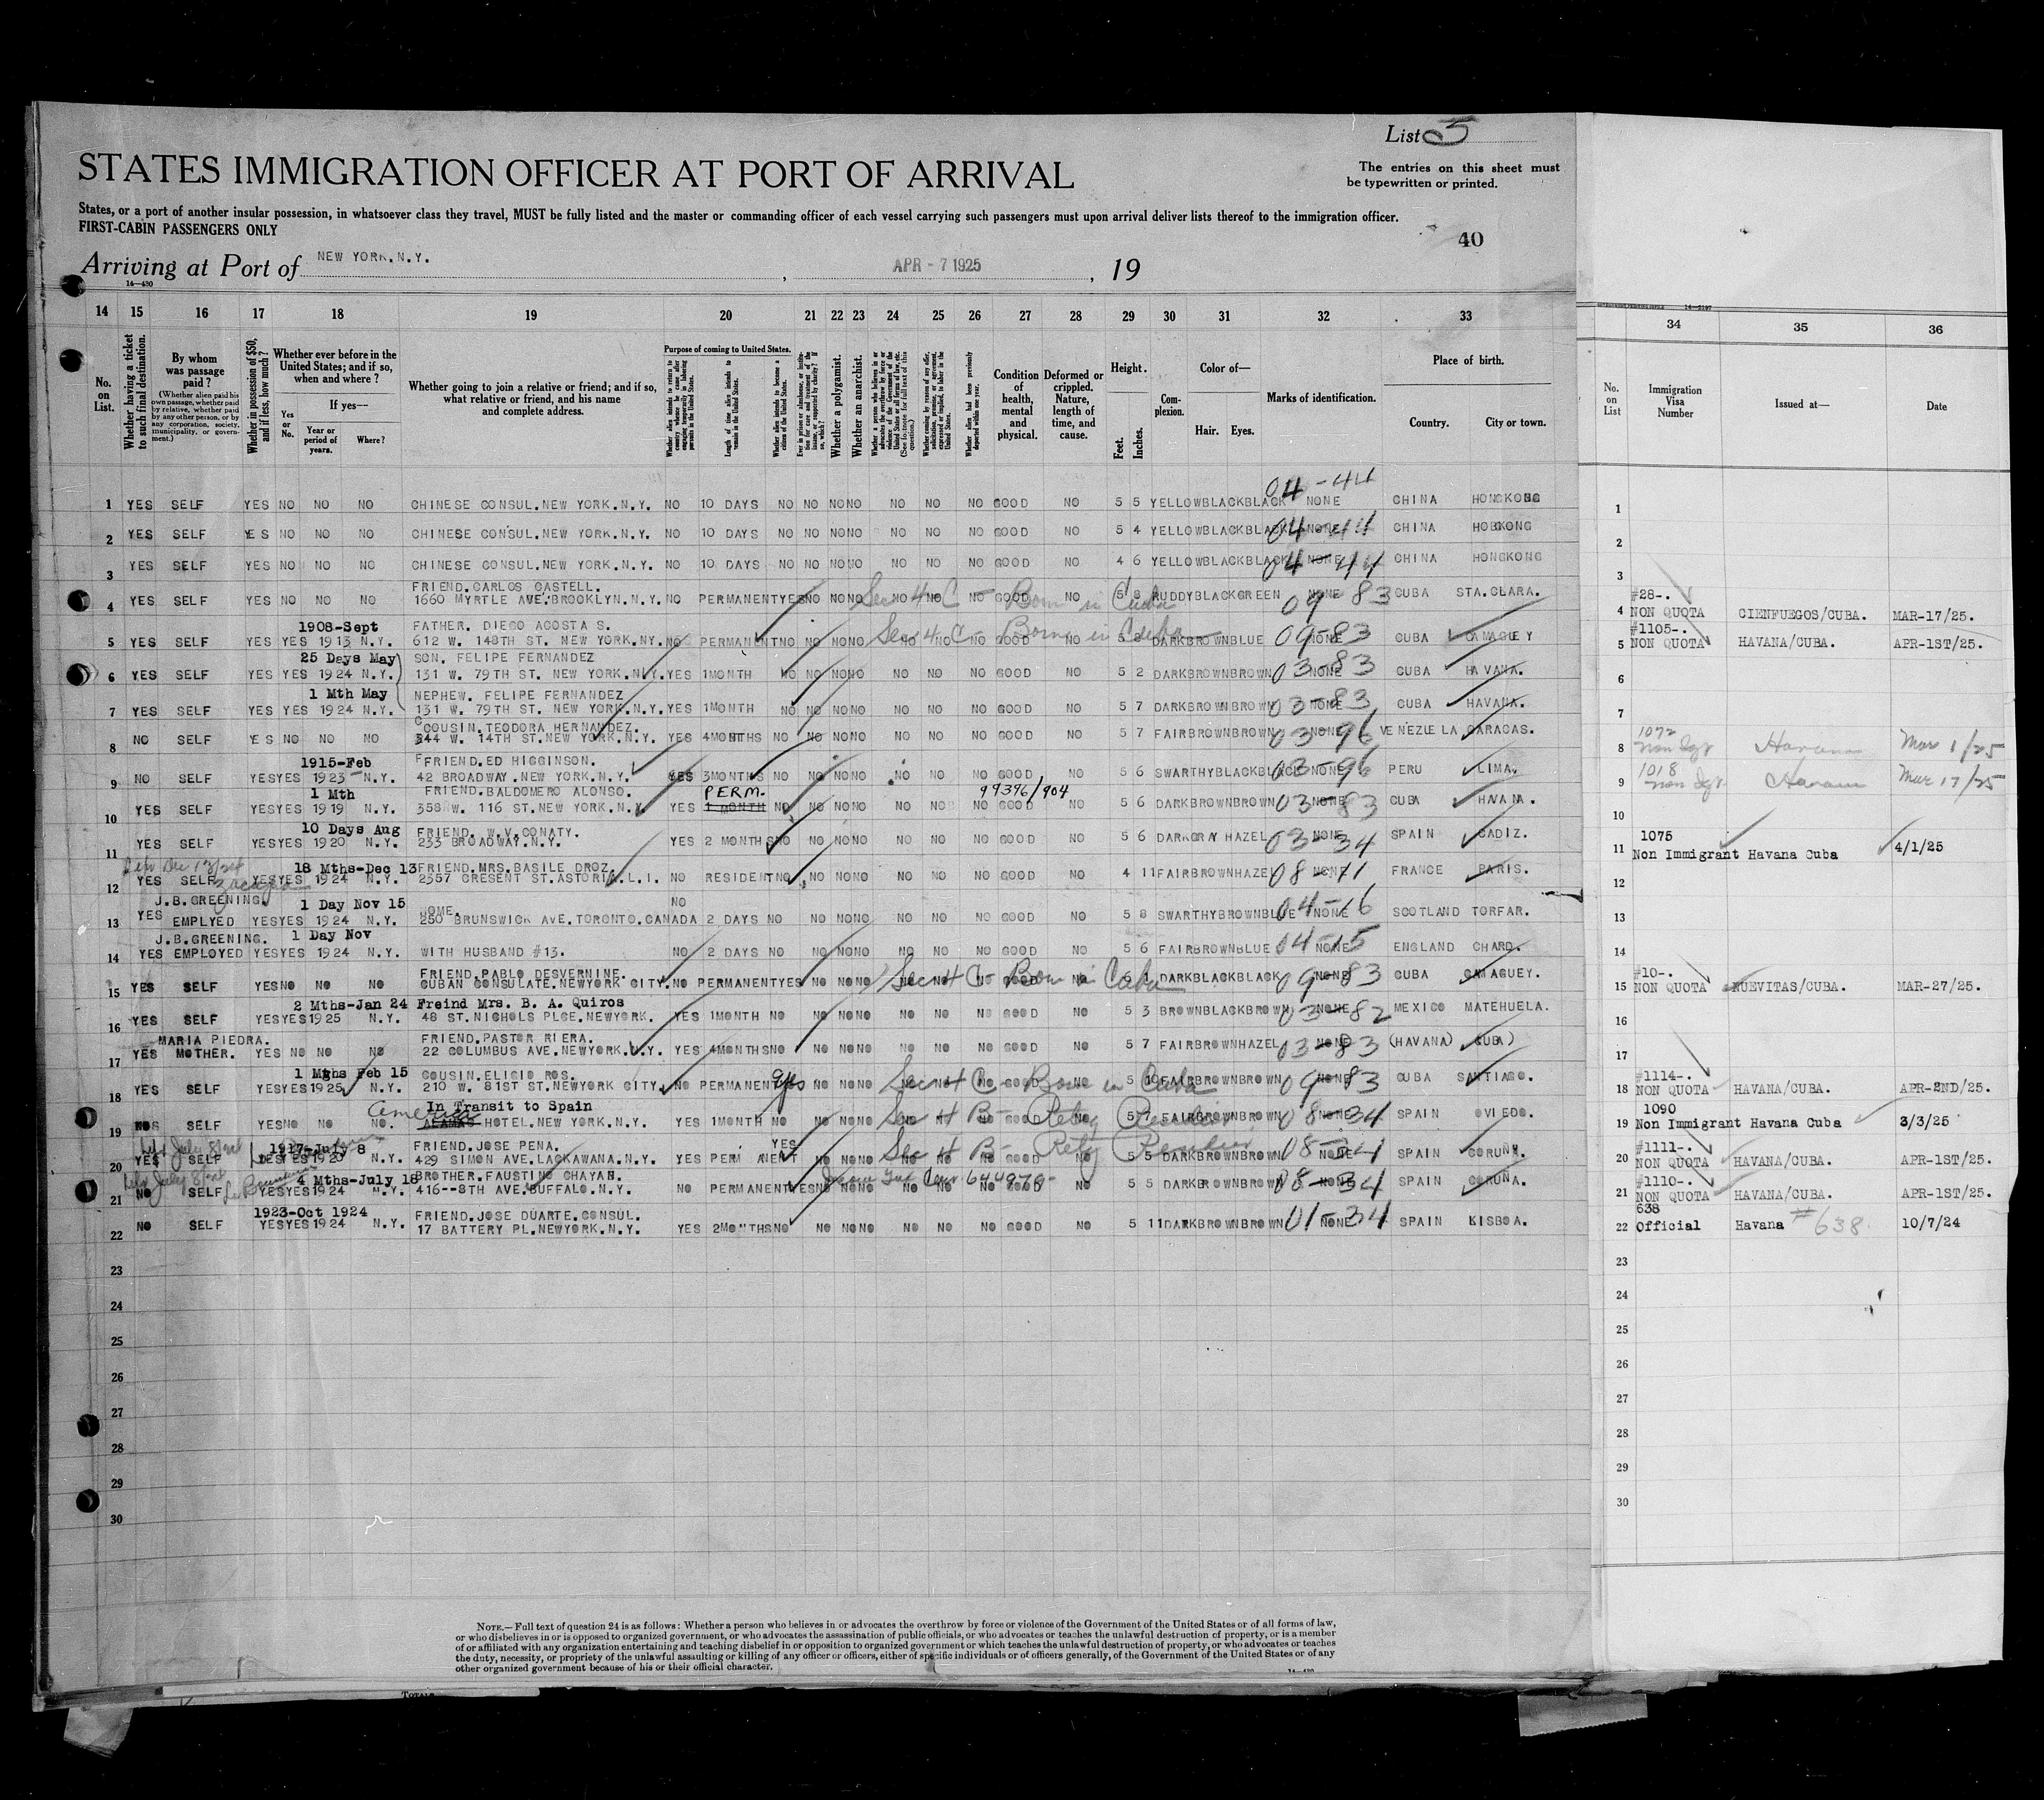 List 5
STATES IMMIGRATION OFFICER AT PORT OF ARRIVAL
The entries on this sheet must
be typewritten or printed.
States, or a port of another insular possession, in whatsoever class they travel, MUST be fully listed and the master or commanding officer of each vessel carrying such passengers must upon arrival deliver lists thereof to the immigration officer.
FIRST-CABIN PASSENGERS ONLY
40
Arriving at Port of NEW YORK.N.Y. , APR - 7 1925 , 19
14—430
14—2197
14 15 16 17 18 19 20 21 22 23 24 25 26 27 28 29 30 31 32 33 34 35 36
No. on List.
Whether having a ticket to such final destination.
By whom was passage paid?
(Whether alien paid his own passage, whether paid by relative, whether paid by any other person, or by any corporation, society, municipality, or government.)
Whether in possession of $50, and if less, how much?
Whether ever before in the United States; and if so, when and where?
If yes—
Yes or No.
Year or period of years.
Where?
Whether going to join a relative or friend; and if so, what relative or friend, and his name and complete address.
Purpose of coming to United States.
Length of time alien intends to remain in the United States.
Whether alien intends to become a citizen of the United States.
Whether a polygamist.
Whether an anarchist.
Condition of health, mental and physical.
Deformed or crippled. Nature, length of time, and cause.
Height.
Feet.
Inches.
Complexion.
Color of—
Hair.
Eyes.
Marks of identification.
Place of birth.
Country.
City or town.
No. on List
Immigration Visa Number
Issued at—
Date
04-44
1 YES SELF YES NO NO NO CHINESE CONSUL.NEW YORK.N.Y. NO 10 DAYS NO NO NO NO NO NO NO GOOD NO 5 5 YELLOW BLACK BLACK NONE CHINA HONGKONG
2 YES SELF YES NO NO NO CHINESE CONSUL.NEW YORK.N.Y. NO 10 DAYS NO NO NO NO NO NO NO GOOD NO 5 4 YELLOW BLACK BLACK 04-44 NONE CHINA HOGKONG
3 YES SELF YES NO NO NO CHINESE CONSUL.NEW YORK.N.Y. NO 10 DAYS NO NO NO NO NO NO NO GOOD NO 4 6 YELLOW BLACK BLACK 04-44 NONE CHINA HONGKONG
FRIEND.CARLOS CASTELL.
4 YES SELF YES NO NO NO 1660 MYRTLE AVE.BROOKLYN.N.Y. NO PERMANENT YES NO NO NO Sec 4 C - Born in Cuba 5 8 RUDDY BLACK GREEN 09 83 CUBA STA.CLARA.
#28-.
4 NON QUOTA CIENFUEGOS/CUBA. MAR-17/25.
1908-Sept FATHER. DIEGO ACOSTA S.
5 YES SELF YES YES 1913 N.Y. 612 W. 148TH ST. NEW YORK.NY. NO PERMANENT NO NO NO NO Sec 4 C - Born in Cuba 5 8 DARK BROWN BLUE 09-83 NONE CUBA CAMAGUEY
#1105-.
5 NON QUOTA HAVANA/CUBA. APR-1ST/25.
25 Days May SON. FELIPE FERNANDEZ
6 YES SELF YES YES 1924 N.Y. 131 W. 79TH ST. NEW YORK.N.Y. YES 1MONTH NO NO NO NO NO NO NO GOOD NO 5 2 DARK BROWN BROWN 03-83 NONE CUBA HAVANA.
1 Mth May NEPHEW. FELIPE FERNANDEZ
7 YES SELF YES YES 1924 N.Y. 131 W. 79TH ST. NEW YORK.N.Y. YES 1MONTH NO NO NO NO NO NO NO GOOD NO 5 7 DARK BROWN BROWN 03-83 NONE CUBA HAVANA.
COUSIN.TEODORA HERNANDEZ.
8 NO SELF YES NO NO NO 344 W. 14TH ST.NEW YORK.N.Y. YES 4MONTHS NO NO NO NO NO NO NO GOOD NO 5 7 FAIR BROWN BROWN 03-96 NONE VENEZUELA CARACAS.
1072
8 Havana Mar 1/25
1915-Feb FRIEND.ED HIGGINSON.
9 NO SELF YES YES 1923- N.Y. 42 BROADWAY.NEW YORK.N.Y. YES 3MONTHS NO NO NO NO NO NO NO GOOD NO 5 6 SWARTHY BLACK BLACK 03-96 NONE PERU LIMA.
1018
9 Havana Mar 17/25
1 Mth FRIEND.BALDOMERO ALONSO. PERM. 99396/904
10 YES SELF YES YES 1919 N.Y. 358 W. 116 ST.NEW YORK.N.Y. YES 1 MONTH NO NO NO NO NO NO NO GOOD NO 5 6 DARK BROWN BROWN 03 83 NONE CUBA HAVANA.
10 Days Aug FRIEND. W.V.CONATY.
11 YES SELF YES YES 1920 N.Y. 233 BROADWAY.N.Y. YES 2 MONTHS NO NO NO NO NO NO NO GOOD NO 5 6 DARK GRAY HAZEL 03-34 NONE SPAIN CADIZ.
1075
11 Non Immigrant Havana Cuba 4/1/25
18 Mths-Dec 13 FRIEND.MRS.BASILE DROZ.
12 YES SELF YES YES 1924 N.Y. 2357 CRESENT ST.ASTORIA.L.I. NO RESIDENT NO NO NO NO NO NO NO GOOD NO 4 11 FAIR BROWN HAZEL 08-71 NONE FRANCE PARIS.
J.B.GREENING. 1 Day Nov 15 HOME. NO
13 YES EMPLYED YES YES 1924 N.Y. 250 BRUNSWICK AVE.TORONTO.CANADA 2 DAYS NO NO NO NO NO NO NO GOOD NO 5 8 SWARTHY BROWN BLUE 04-16 NONE SCOTLAND TORFAR.
J.B.GREENING. 1 Day Nov
14 YES EMPLOYED YES YES 1924 N.Y. WITH HUSBAND #13. NO 2 DAYS NO NO NO NO NO NO NO GOOD NO 5 6 FAIR BROWN BLUE 04-15 NONE ENGLAND CHARD.
FRIEND.PABLO DESVERNINE.
15 YES SELF YES NO NO NO CUBAN CONSULATE.NEWYORK CITY. NO PERMANENT YES NO NO NO Sec 4 C - Born in Cuba 6 1 DARK BLACK BLACK 09-83 NONE CUBA CAMAGUEY.
#10-.
15 NON QUOTA NUEVITAS/CUBA. MAR-27/25.
2 Mths-Jan 24 Freind Mrs. B. A. Quiros
16 YES SELF YES YES 1925 N.Y. 48 ST.NICHOLS PLCE.NEWYORK. YES 1MONTH NO NO NO NO NO NO NO GOOD NO 5 3 BROWN BLACK BROWN 03-82 NONE MEXICO MATEHUELA.
MARIA PIEDRA. FRIEND.PASTOR RIERA.
17 YES MOTHER. YES NO NO NO 22 COLUMBUS AVE.NEWYORK.N.Y. YES 4MONTHS NO NO NO NO NO NO NO GOOD NO 5 7 FAIR BROWN HAZEL 03-83 NONE (HAVANA) CUBA)
1 Mths Feb 15 COUSIN.ELIGIO ROS.
18 YES SELF YES YES 1925 N.Y. 210 W. 81ST ST.NEWYORK CITY. NO PERMANENT yes NO NO NO Sec 4 C - Born in Cuba 5 10 FAIR BROWN BROWN 09-83 NONE CUBA SANTIAGO.
#1114-.
18 NON QUOTA HAVANA/CUBA. APR-2ND/25.
America In Transit to Spain
19 SELF YES NO NO NO. ALAMAC HOTEL.NEW YORK.N.Y. YES 1MONTH NO NO NO NO Sec 4 B- Retg Resident 5 7 FAIR BROWN BROWN 08-34 NONE SPAIN OVIEDO.
1090
19 Non Immigrant Havana Cuba 3/3/25
1917-July 8 FRIEND.JOSE PENA. YES
20 YES SELF YES YES 1920 N.Y. 429 SIMON AVE.LACKAWANA.N.Y. YES PERMANENT NO NO NO Sec 4 B- Retg Resident 5 5 DARK BROWN BROWN NONE SPAIN CORUNA.
#1111-.
20 NON QUOTA HAVANA/CUBA. APR-1ST/25.
4 Mths-July 18 BROTHER.FAUSTINO CHAYAN.
21 NO SELF YES YES 1924 N.Y. 416--8TH AVE.BUFFALO.N.Y. NO PERMANENT YES NO NO NO 5 5 DARK BROWN BROWN 08-34 NONE SPAIN CORUNA.
#1110-.
21 NON QUOTA HAVANA/CUBA. APR-1ST/25.
1923-Oct 1924 FRIEND.JOSE DUARTE.CONSUL.
22 NO SELF YES YES 1924 N.Y. 17 BATTERY PL.NEWYORK.N.Y. YES 2MONTHS NO NO NO NO NO NO NO GOOD NO 5 11 DARK BROWN BROWN 01-34 NONE SPAIN KISBOA.
638
22 Official Havana #638 10/7/24
23
24
25
26
27
28
29
30
NOTE.—Full text of question 24 is as follows: Whether a person who believes in or advocates the overthrow by force or violence of the Government of the United States or of all forms of law,
or who disbelieves in or is opposed to organized government, or who advocates the assassination of public officials, or who advocates or teaches the unlawful destruction of property, or is a member
of or affiliated with any organization entertaining and teaching disbelief in or opposition to organized government or which teaches the unlawful destruction of property, or who advocates or teaches
the duty, necessity, or propriety of the unlawful assaulting or killing of any officer or officers, either of specific individuals or of officers generally, of the Government of the United States or of any
other organized government because of his or their official character.
14—430
TOTALS